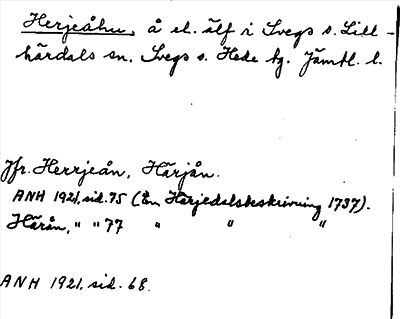 Herjeåhu, å el. älf i Svegs o. Lill-
härdals sn. Svegs o. Hede tg. Jämtl. l.
Jfr. Herrjeån, Härjån.
ANH 1921, sid. 75 (En Härjedalsbeskrivning 1737).
Härån, " " 77 " " "
ANH 1921, sid. 68.